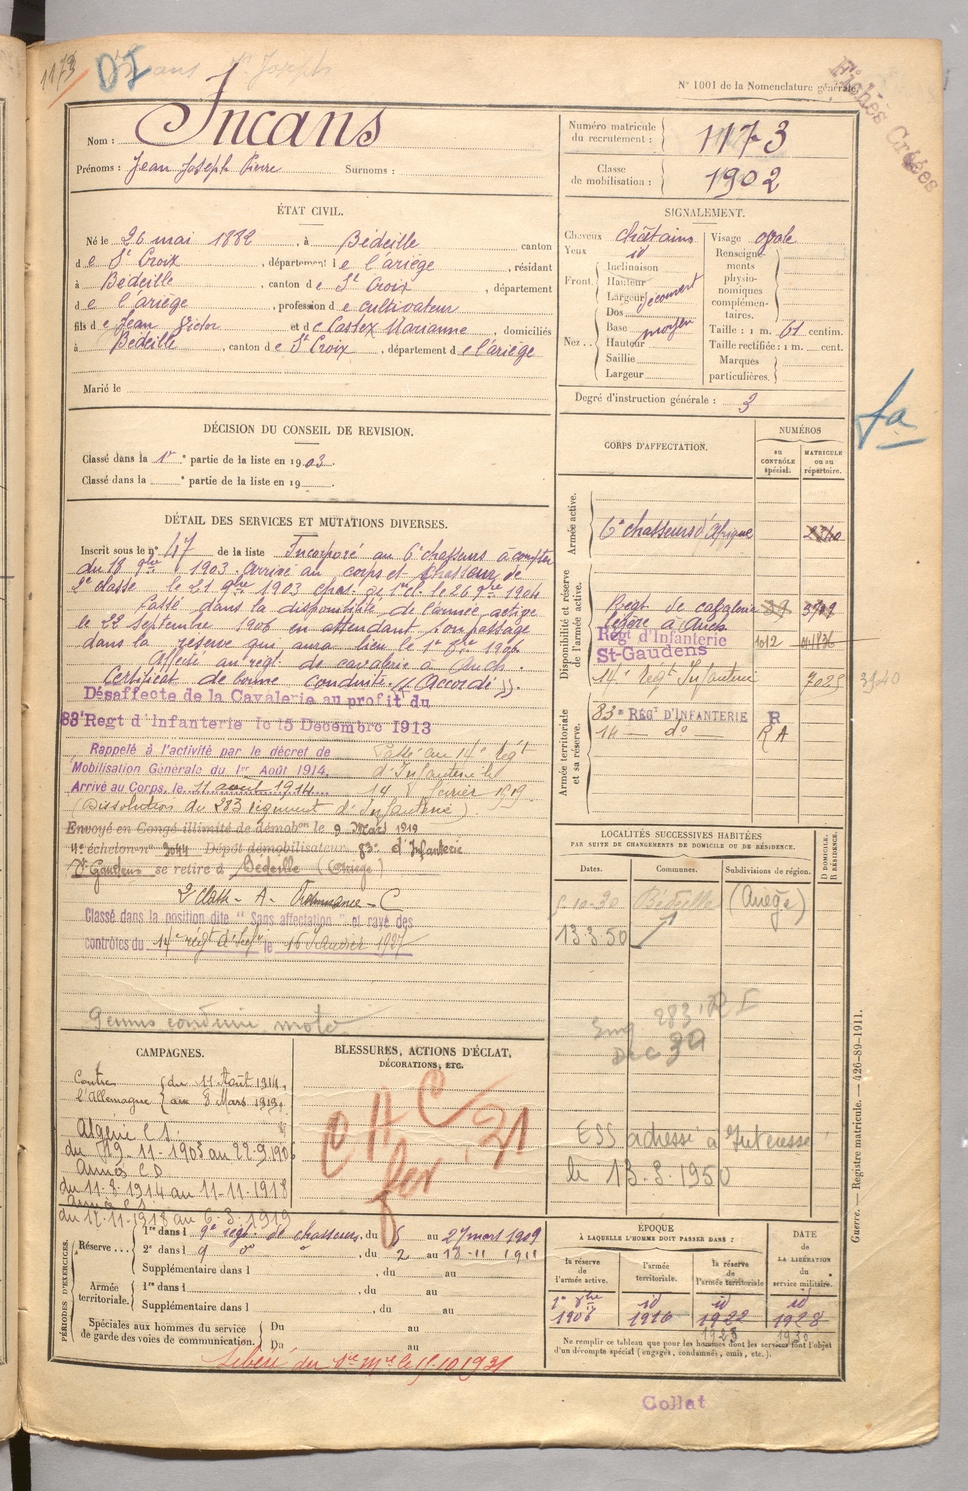 1173
DJ
N° 1001 de la Nomenclature générale.
Fiches Créées
Nom : Incans
Prénoms : Jean Joseph Pierre Surnoms :
Numéro matricule du recrutement : 1173
Classe de mobilisation : 1902
ÉTAT CIVIL.
Né le 26 mai 1882, à Bédeille canton
de St Croix, département de l'ariège, résidant
à Bédeille, canton de St Croix, département
de l'ariège, profession de cultivateur
fils de Jean Victor et de Castex Marianne, domiciliés
à Bédeille, canton de St Croix, département de l'ariège
Marié le
SIGNALEMENT.
Cheveux châtains
Yeux id
Front. Inclinaison
Hauteur
Largeur découvert
Nez. Dos
Base moyen
Hauteur
Saillie
Largeur
Visage ovale
Renseignements physionomiques complémentaires.
Taille : 1 m. 61 centim.
Taille rectifiée : 1 m. cent.
Marques particulières.
Degré d'instruction générale : 3
DÉCISION DU CONSEIL DE REVISION.
Classé dans la 1re partie de la liste en 1903.
Classé dans la partie de la liste en 19
DÉTAIL DES SERVICES ET MUTATIONS DIVERSES.
Inscrit sous le n° 47 de la liste Incorporé au 6e chasseurs à compter
du 18 9bre 1903. Arrivé au corps et chasseur de
2e classe le 21 9bre 1903 chas. de 1re cl. le 26 9bre 1904
Passé dans la disponibilité de l'armée active
le 22 Septembre 1906 en attendant son passage
dans la réserve qui aura lieu le 1er 8bre 1906.
Affecté au régt. de cavalerie à Auch.
Certificat de bonne conduite "Accordé".
Désaffecté de la Cavalerie au profit du
83e Regt d'Infanterie le 15 Decembre 1913
Rappelé à l'activité par le décret de
Mobilisation Générale du 1er Août 1914.
Arrivé au Corps, le 11 août 1914
Passé au 14e régt
d'Infanterie le
14 8 février 1919
(Dissolution du 283 régiment d'Infanterie)
Envoyé en Congé illimité de démobon le 9 Mars 1919
4e échelon n° 3044 Dépôt démobilisateur 83e d'Infanterie
St Gaudens se retire à Bédeille (Ariège)
Classé dans la position dite "Sans affectation" et rayé des
contrôles du 14e régt d'Infie le 16 Janvier 1927
Permis conduire moto
CORPS D'AFFECTATION.
NUMÉROS
au contrôle spécial.
matricule ou au répertoire.
Armée active.
6e chasseurs d'Afrique 2340
Disponibilité et réserve de l'armée active.
Régt de cavalerie légère à Auch
Régt d'Infanterie St-Gaudens 1012
14e Régt Infanterie 7025
3940
Armée territoriale et sa réserve.
83e RÉGt D'INFANTERIE R
14 — do — RA
fa
LOCALITÉS SUCCESSIVES HABITÉES
PAR SUITE DE CHANGEMENTS DE DOMICILE OU DE RÉSIDENCE.
Dates. Communes. Subdivisions de région. D DOMICILE. R RÉSIDENCE.
5-10-30 Bédeille (Ariège)
13.3.50
283e RI
ESS adressé à Intéressé
le 13.3.1950
CAMPAGNES.
Contre l'Allemagne du 11 Août 1914, au 8 Mars 1919.
Algérie C.S.
du 19-11-1903 au 22-9-1906
Armées C.D.
du 11-8-1914 au 11-11-1918
du 12-11-1918 au 6-3-1919
BLESSURES, ACTIONS D'ÉCLAT,
DÉCORATIONS, ETC.
PÉRIODES D'EXERCICES.
Réserve 1re dans l 9e régt de chasseurs, du 5 au 27 mars 1909
2e dans l 9 do, du 2 au 18-11 1911
Supplémentaire dans l, du au
Armée territoriale. 1re dans l, du au
Supplémentaire dans l, du au
Spéciales aux hommes du service de garde des voies de communication. Du au
Du au
Libéré du Sce Mre le 15.10.1931
ÉPOQUE
À LAQUELLE L'HOMME DOIT PASSER DANS :
la réserve de l'armée active. l'armée territoriale. la réserve de l'armée territoriale
DATE DE LA LIBÉRATION du service militaire.
1er 8bre id id id
1906 1916 1922 1928
1923 1930
Ne remplir ce tableau que pour les hommes dont les services font l'objet d'un décompte spécial (engagés, condamnés, omis, etc.).
Guerre. — Registre matricule. — 426-89-1911.
Collat